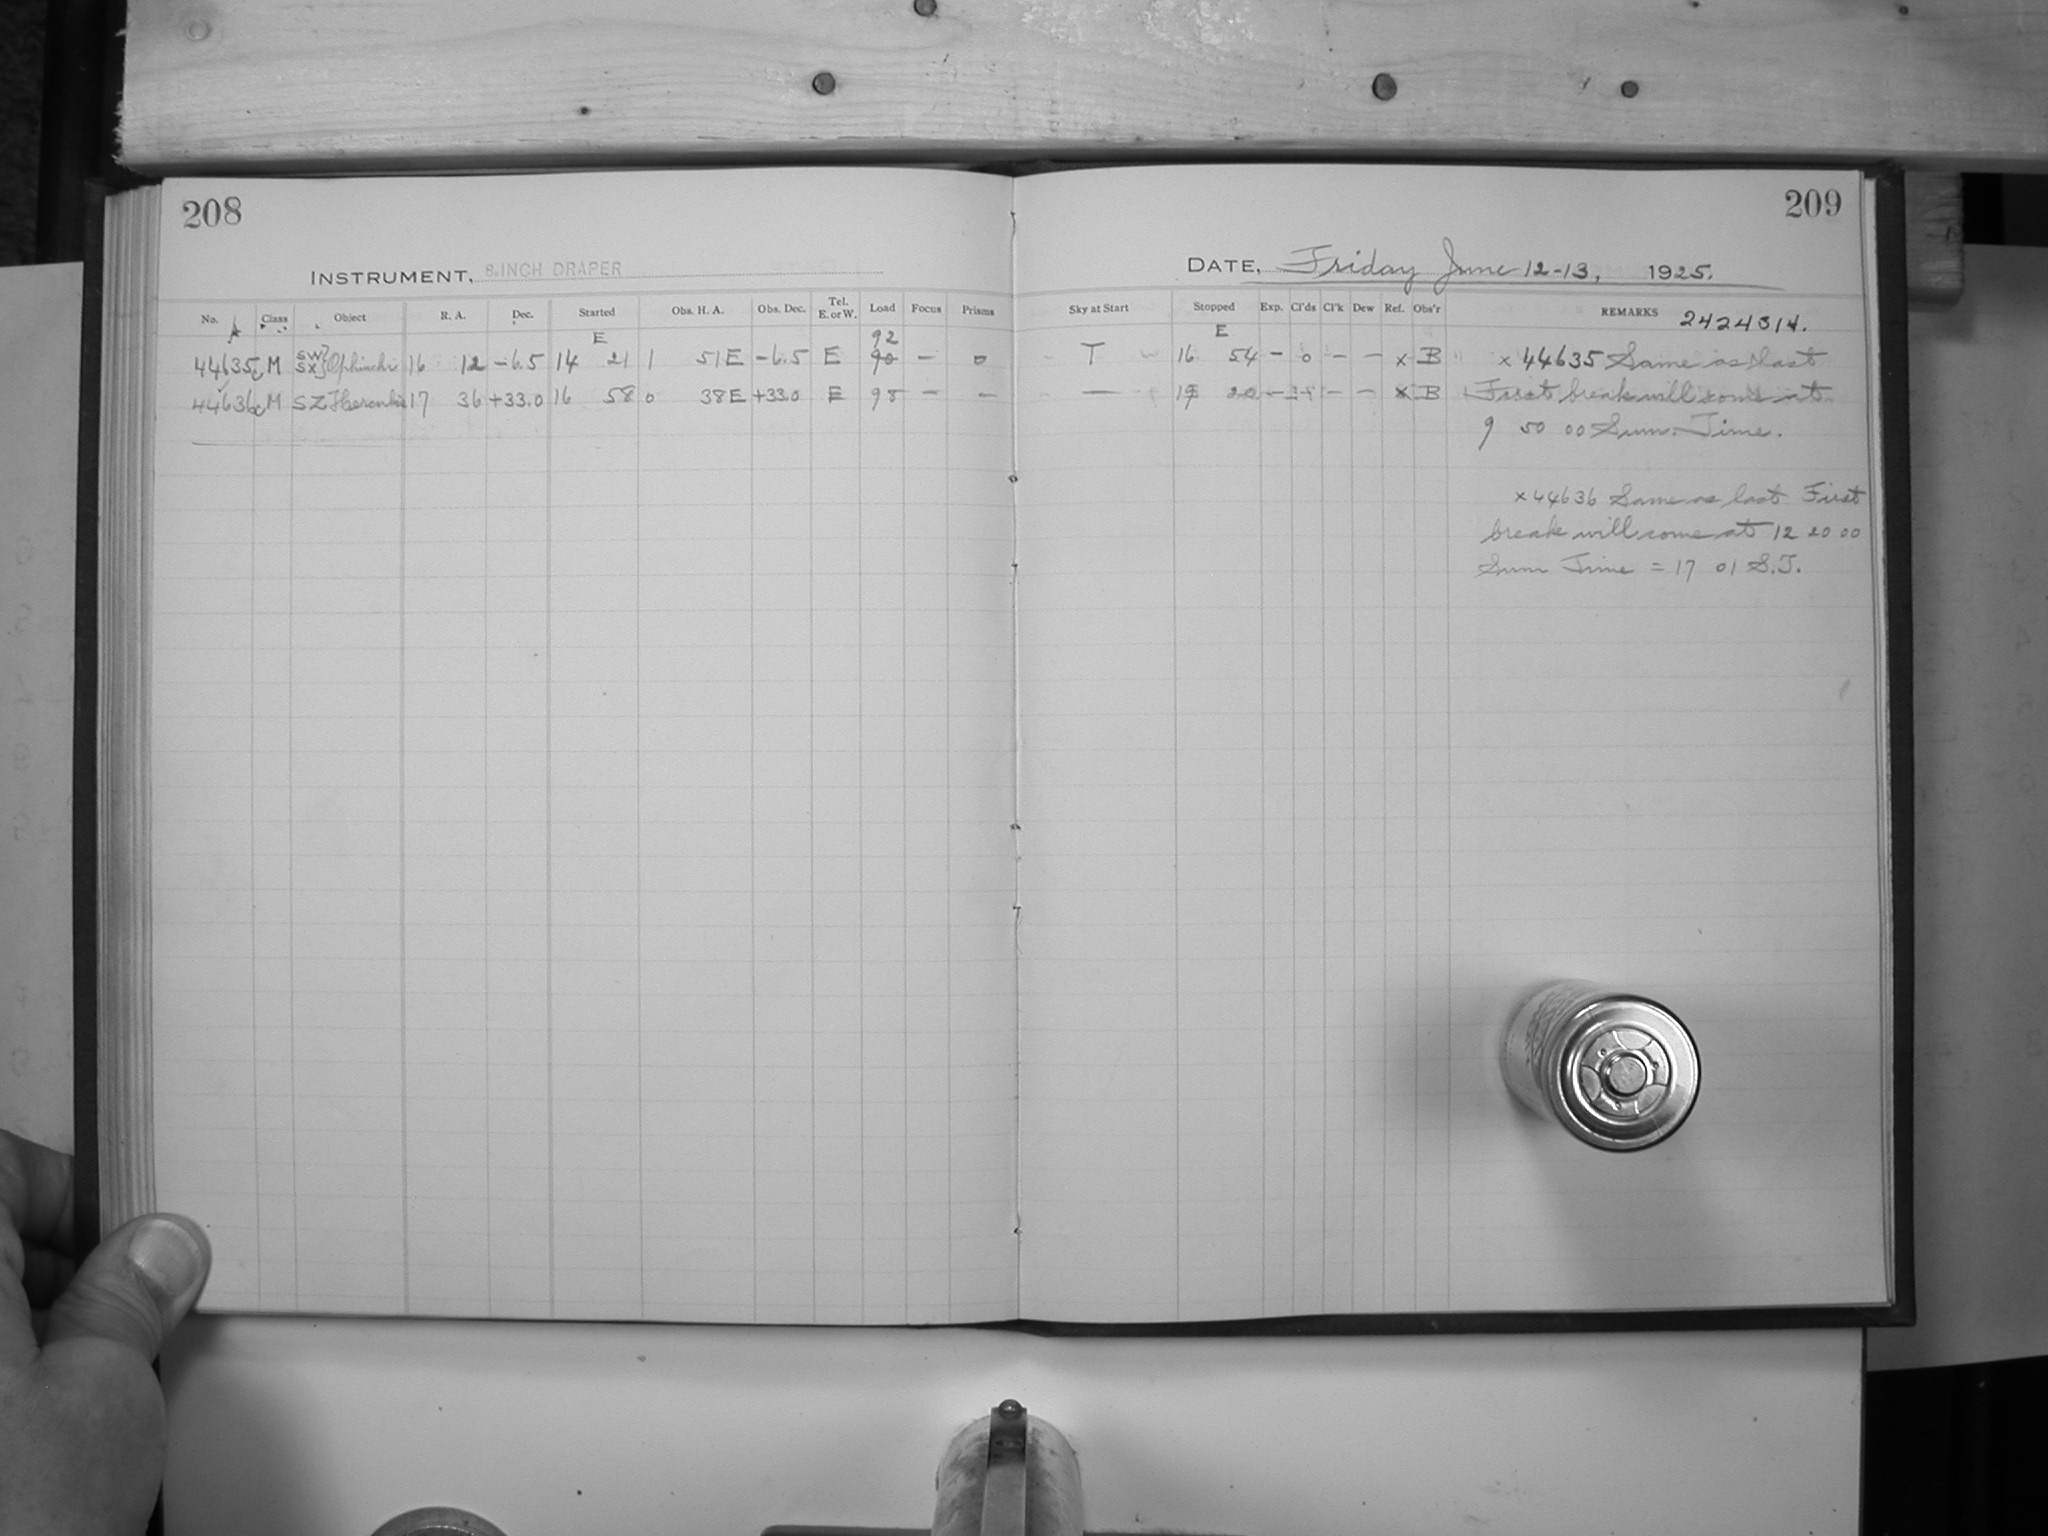 208
INSTRUMENT, 8-INCH DRAPER
No. Class Object R. A. Dec. Started Obs. H. A. Obs. Dec. Tel. E. or W. Load Focus Prisms
E 92
44635 c M SW SX } Ophiuchi 16 12 -6.5 14 21 1 51 E -6.5 E 90 – 0
44636 c M SZ Herculis 17 36 +33.0 16 58 0 38 E +33.0 E 98 – –
209
DATE, Friday June 12-13, 1925.
Sky at Start Stopped Exp. Cl'ds Cl'k Dew Ref. Obs'r REMARKS 2424314.
E
T 16 54 – 0 – – x B x 44635 Same as last
— 19 20 – – – x B First break will come at
9 50 00 Sum. Time.
x 44636 Same as last First
break will come at 12 20 00
Sum Time = 17 01 S.T.